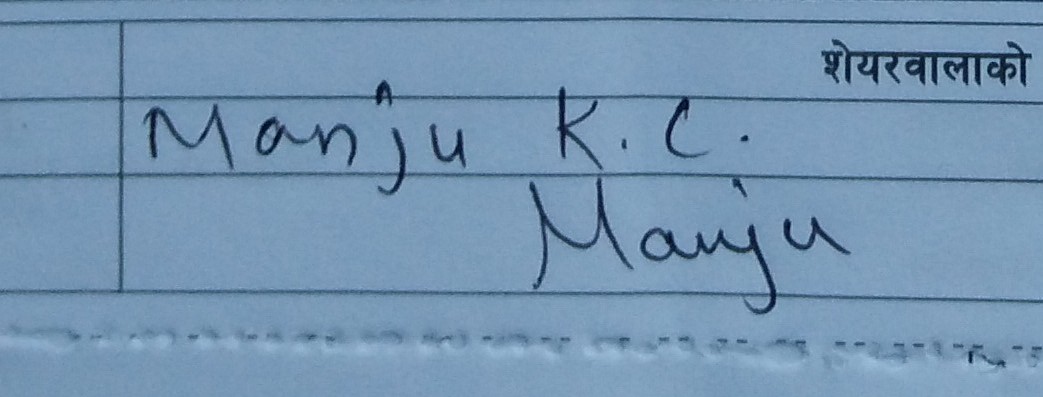 शेयरवालाको
Manju K.C.
Manju